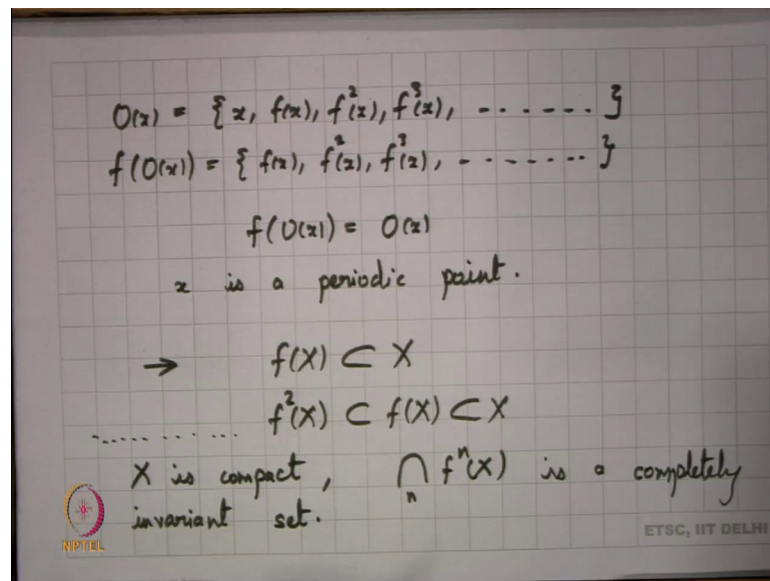 O(x) = { x, f(x), f²(x), f³(x), ------ }
f(O(x)) = { f(x), f²(x), f³(x), -------- }
f(O(x)) = O(x)
x is a periodic point.
→ f(X) ⊂ X
f²(X) ⊂ f(X) ⊂ X
..........
X is compact, ⋂ₙ fⁿ(X) is a completely
invariant set.
NPTEL
ETSC, IIT DELHI